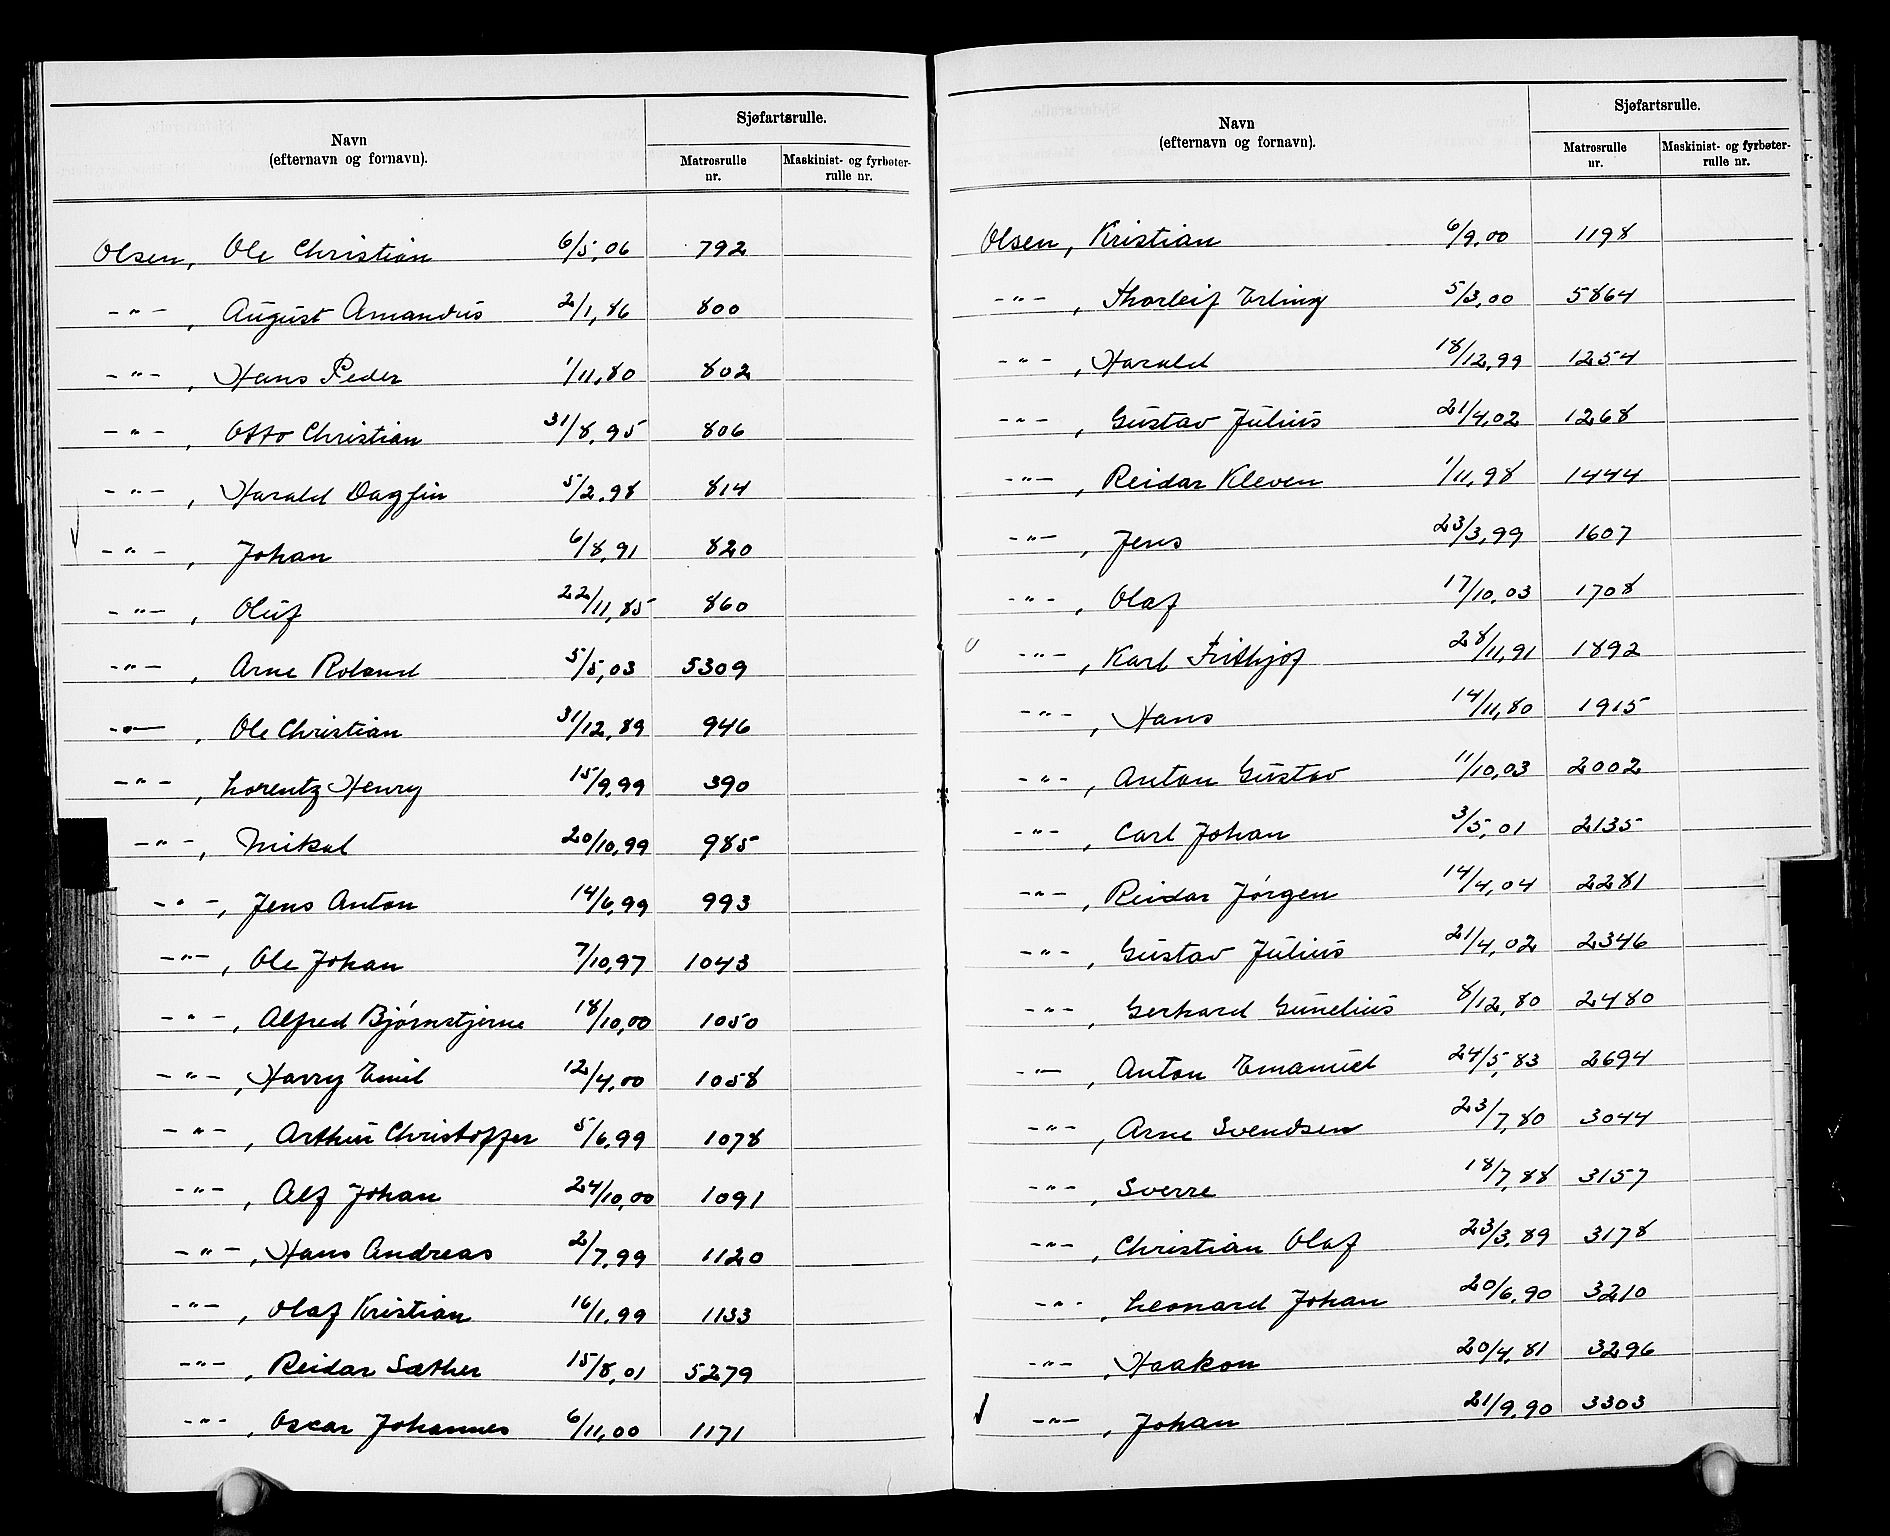 Navn
(efternavn og fornavn).
Sjøfartsrulle.
Matrosrulle nr.
Maskinist- og fyrbøter-rulle nr.
Olsen, Ole Christian 6/5,06 792
-"- , August Amandus 2/1,86 800
-"- , Hans Peder 1/11,80 802
-"- , Otto Christian 31/8,95 806
-"- , Harald Dagfin 5/2,98 814
-"- , Johan 6/8,91 820
-"- , Oluf 22/11,85 860
-"- , Arne Roland 5/5,03 5309
-"- , Ole Christian 31/12,89 946
-"- , Lorentz Henry 15/9,99 390
-"- , Mikal 20/10,99 985
-"- , Jens Anton 14/6,99 993
-"- , Ole Johan 7/10,97 1043
-"- , Alfred Bjørnstjerne 18/10,00 1050
-"- , Harry Emil 12/4,00 1058
-"- , Arthur Christoffer 5/6,99 1078
-"- , Alf Johan 24/10,00 1091
-"- , Hans Andreas 2/7,99 1120
-"- , Olaf Kristian 16/1,99 1133
-"- , Reidar Sæther 15/8,01 5279
-"- , Oscar Johannes 6/11,00 1171
Navn
(efternavn og fornavn).
Sjøfartsrulle.
Matrosrulle nr.
Maskinist- og fyrbøter-rulle nr.
Olsen, Kristian 6/9,00 1198
-"- , Thorleif Erling 5/3,00 5864
-"- , Harald 18/12,99 1254
-"- , Gustav Julius 21/4,02 1268
-"- , Reidar Kleven 1/11,98 1444
-"- , Jens 23/3,99 1607
-"- , Olaf 17/10,03 1708
-"- , Karl Frithjof 28/11,91 1892
-"- , Hans 14/11,80 1915
-"- , Anton Gustav 11/10,03 2002
-"- , Carl Johan 3/5,01 2135
-"- , Reidar Jørgen 14/4,04 2281
-"- , Gustav Julius 21/4,02 2346
-"- , Gerhard Gunelius 8/12,80 2480
-"- , Anton Emanuel 24/5,83 2694
-"- , Arne Svendsen 23/7,80 3044
-"- , Sverre 18/7,88 3157
-"- , Christian Olaf 23/3,89 3178
-"- , Leonard Johan 20/6,90 3210
-"- , Haakon 20/4,81 3296
-"- , Johan 21/9,90 3303